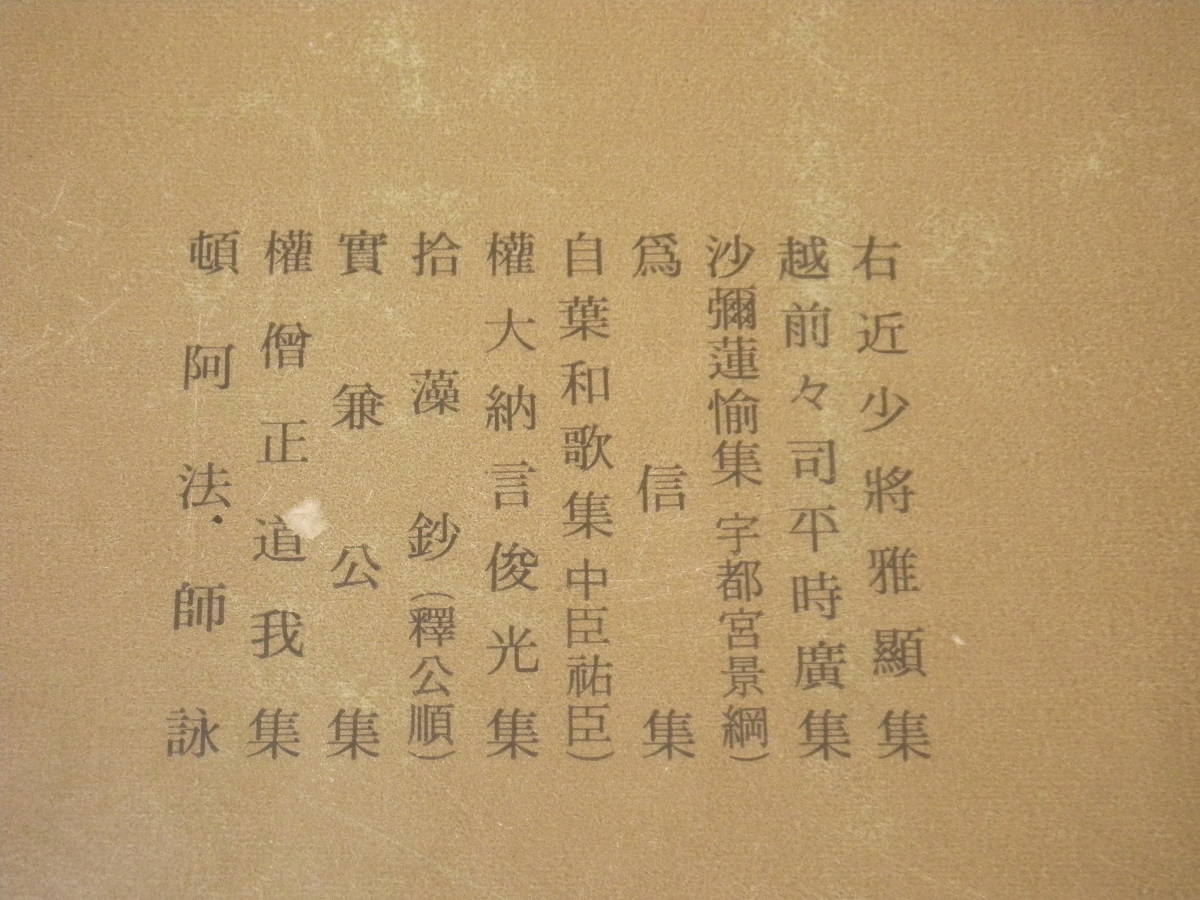 右近少將雅顯集
越前々司平時廣集
沙彌蓮愉集 宇都宮景綱）
爲信集
自葉和歌集 中臣祐臣）
權大納言俊光集
拾藻鈔（釋公順）
實兼公集
權僧正道我集
頓阿法師詠